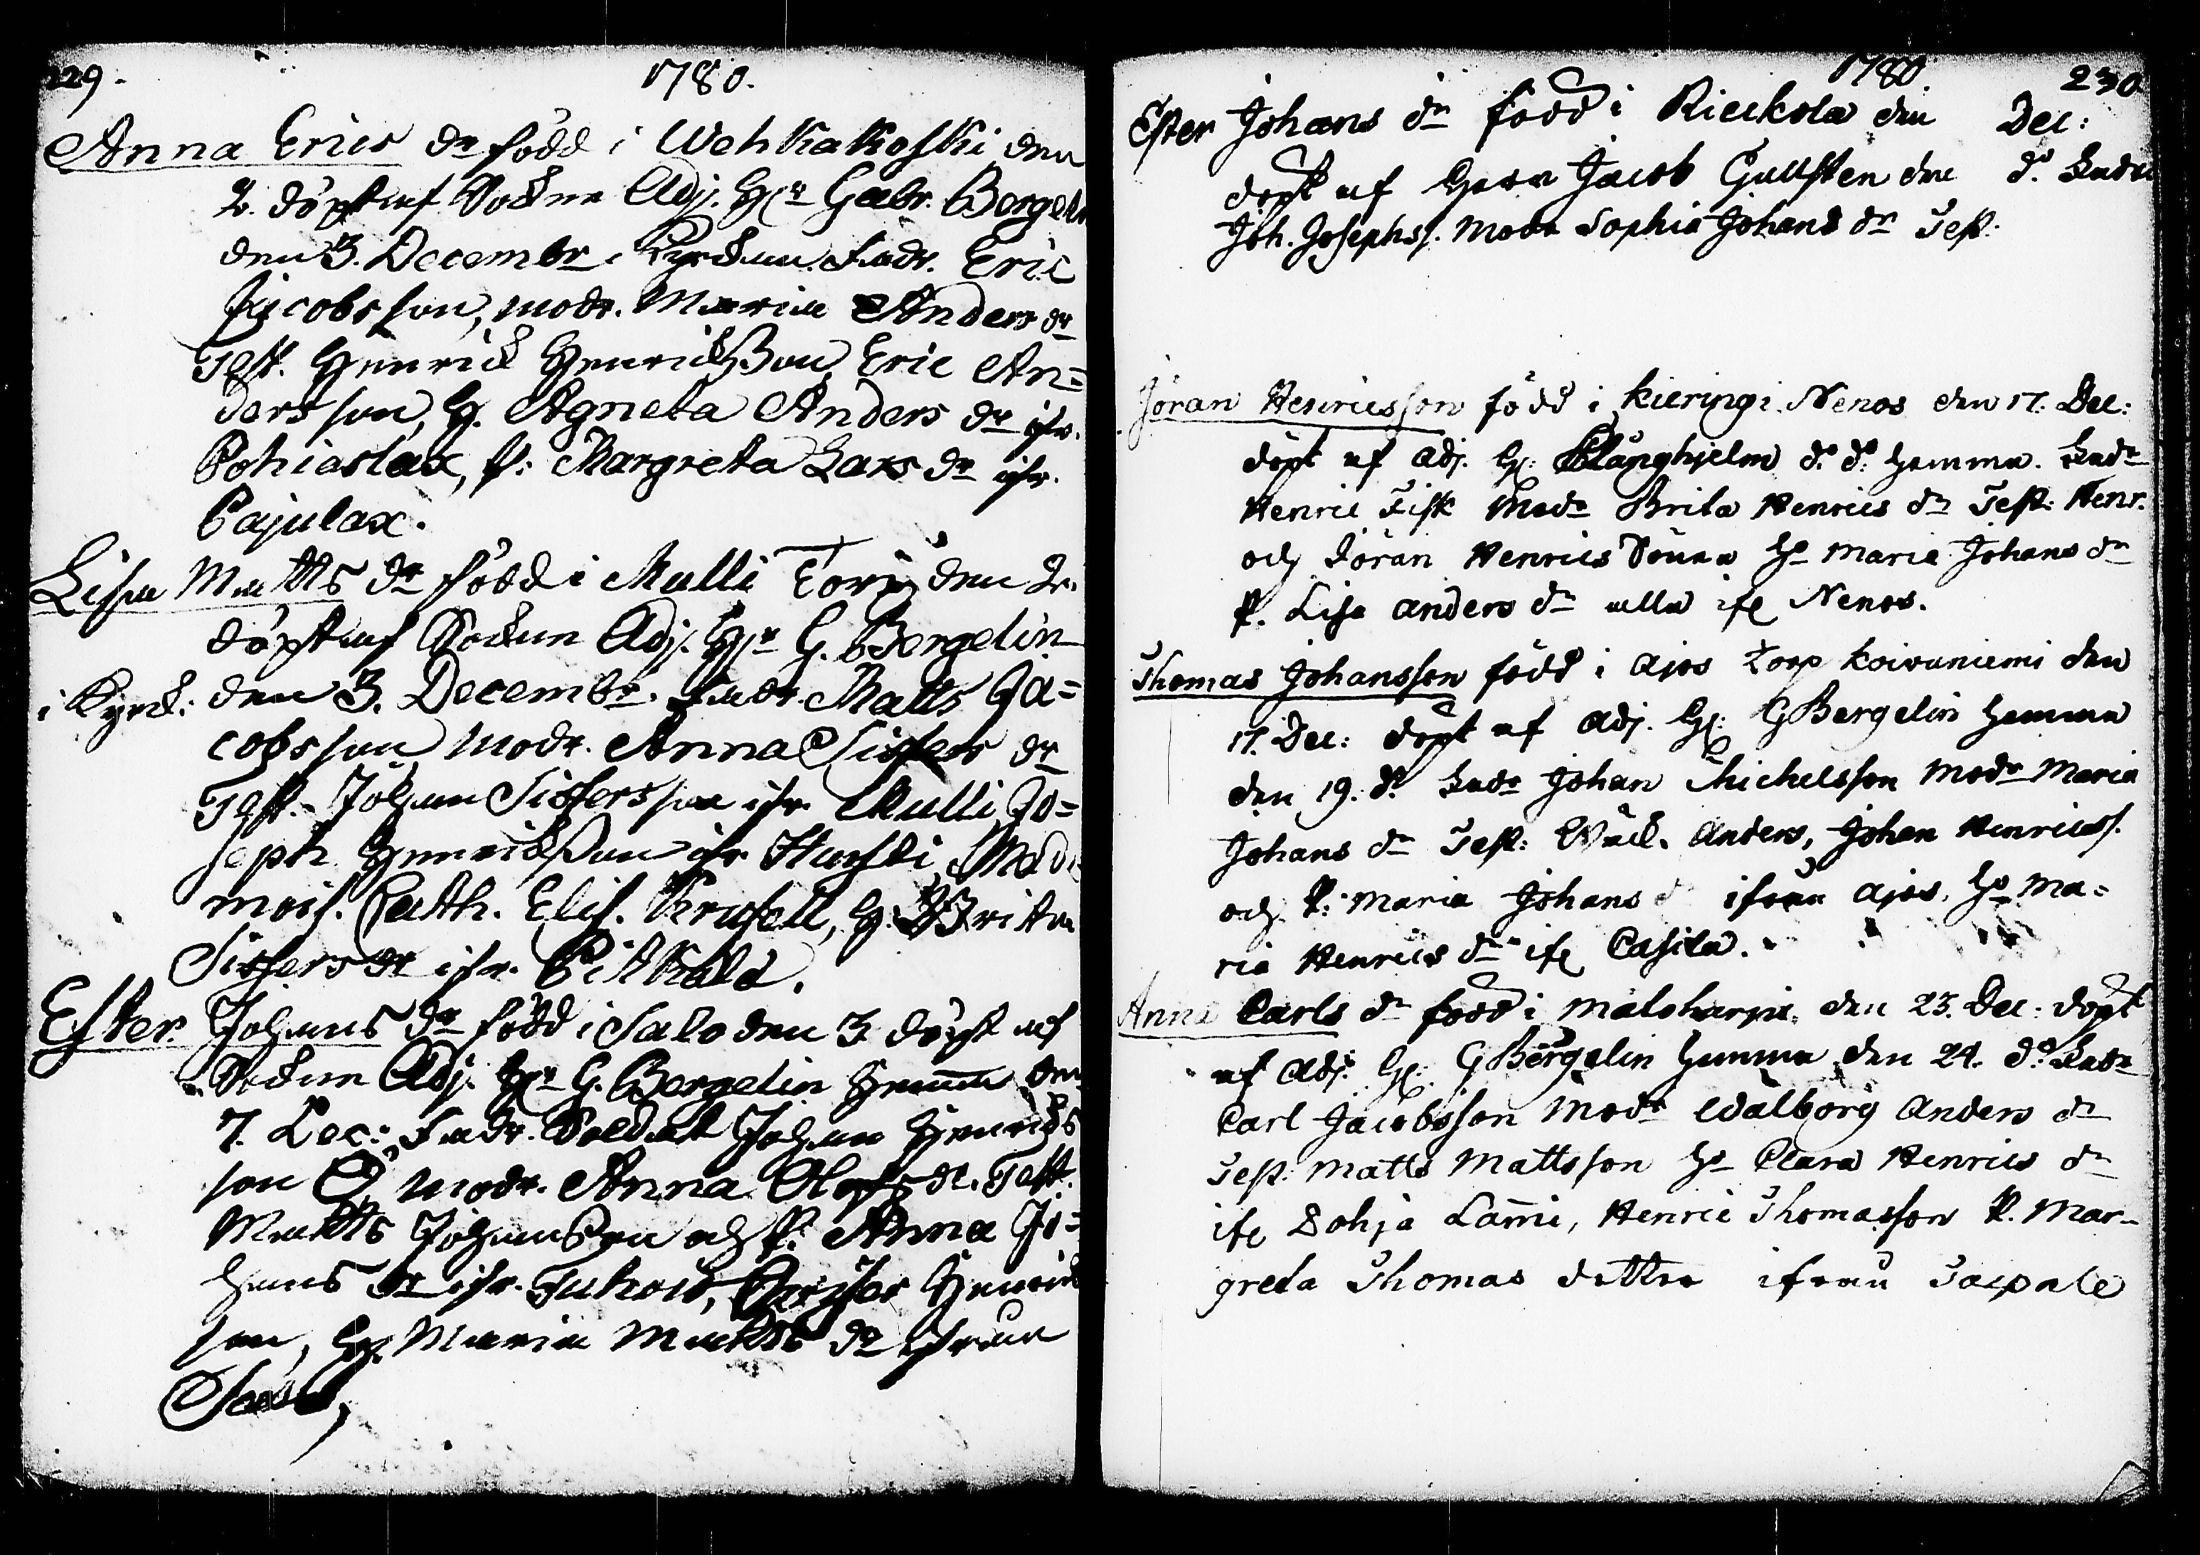 229.
1780.
Anna Erics dr född i Wehkakoski den
2. döpt af Sockne Adj. Hr Gabr. Bergelin
den 3. Decembr i Kyrckan. Fadr. Eric
Jacobsson, modr. Maria Anders dr
Test. Henrick Henricksson, Eric An=
dersson, H. Agneta Anders dr ifr.
Pohiaslax, P: Margreta Lars dr ifr.
Pajulax.
Lisa Matts dr född i Mulli Torp den 2.
döpt af Sockne Adj. Hr G. Bergelin
i Kyrck: den 3. Decembr. Fadr. Matts Ja=
cobsson, modr. Anna Siffers dr
Test. Johan Siffersson ifr. Mulli, Jo=
seph Henricksson ifr , Made
mois. Cath. Elis. Krusell, H. Brita
Siffers dr ifr. Pitkälä.
Ester Johans dr född i Salo den 3 döpt af
Sockne Adj. Hr G. Bergelin hemma den
7. Dec: Fadr. Soldat Johan Henricks
son Ö, modr. Anna Olofs dr. Test.
Matts Johansson och P: Anna Jo=
hans dr ifr. , Henrick
son, H. Maria Matts dr ifrån

1780
230
Ester Johans dr född i Rieckola den Dec:
döpt af Herr Jacob Gullsten den do. Fadr
Joh. Josephss. Modr Sophia Johans dr Test.
Jöran Henricsson född i Kieringi Nenos den 17. Dec:
döpt af Adj. H: Stånghjelm do. do. hemma. Fadr
Henric Fisk Modr Brita Henrics dr Test: Henr.
och Jöran Henrics Söner Ho Maria Johans dr
P. Lisa Anders dr alla ifr Nenos.
Thomas Johansson född i Ajos torp Koivuniemi den
17. Dec: döpt af Adj. H: G Bergelin hemma
den 19. do. Fadr Johan Michelsson Modr Maria
Johans dr Test: Anders, Johan Henricss.
och P: Maria Johans d ifrån Ajos, Ho Ma=
ria Henrics dr ifr Casila.
Anna Carls dr född i Maloharju den 23. Dec: döpt
af Adj. H: G Bergelin hemma den 24. do. Fadr
Carl Jacobsson Modr Walborg Anders dr
Test. Matts Mattsson Ho Clara Henrics dr
ifr Pohja Lammi, Henric Thomasson P. Mar-
greta Thomas dotter ifrån Saipale